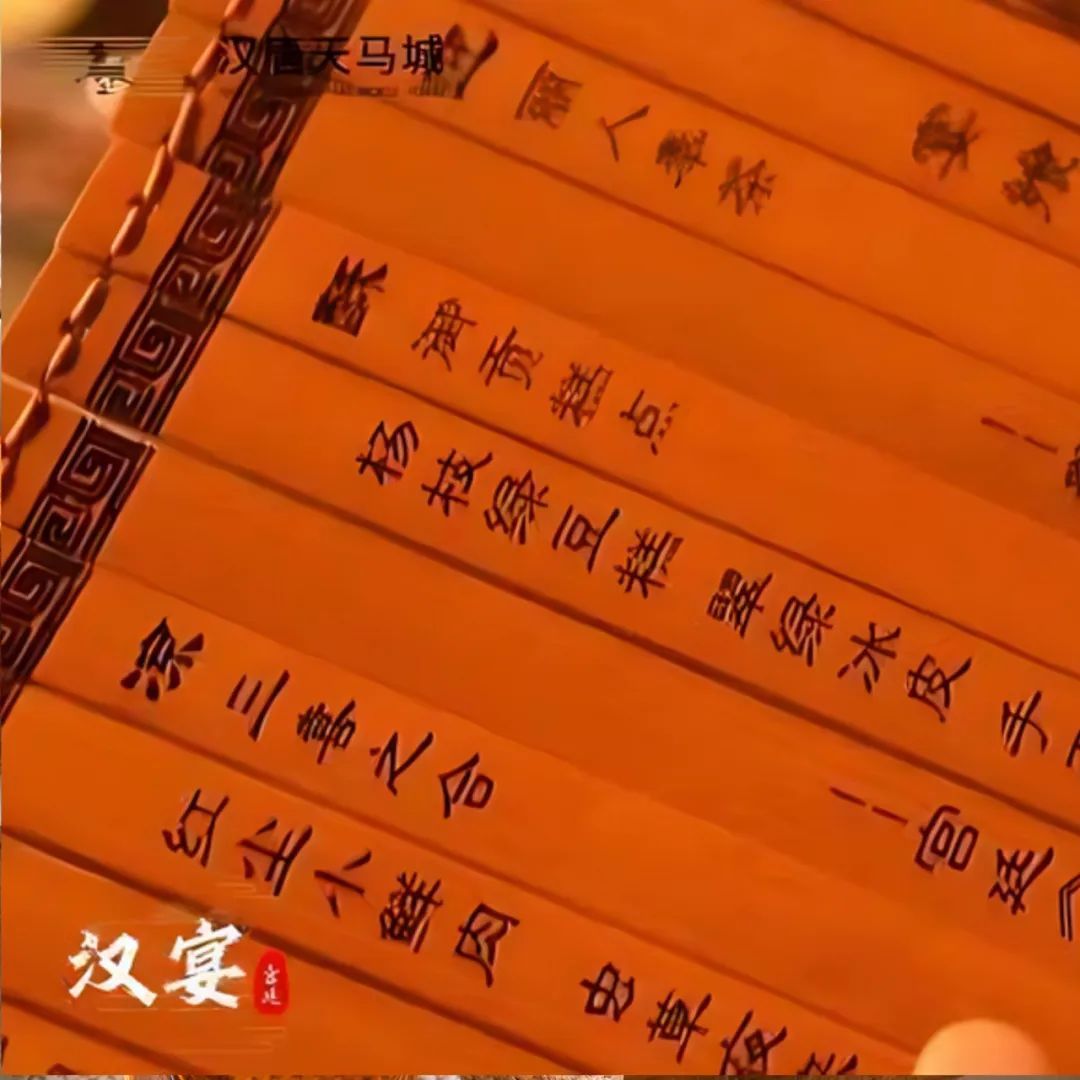 汉唐天马城
丽人奉茶 宴
酥 御贡糕点
杨枝绿豆糕 翠绿冰皮 手
凉 三喜之合 ——宫廷《
红尘小鲜肉 忠草夜
汉宴